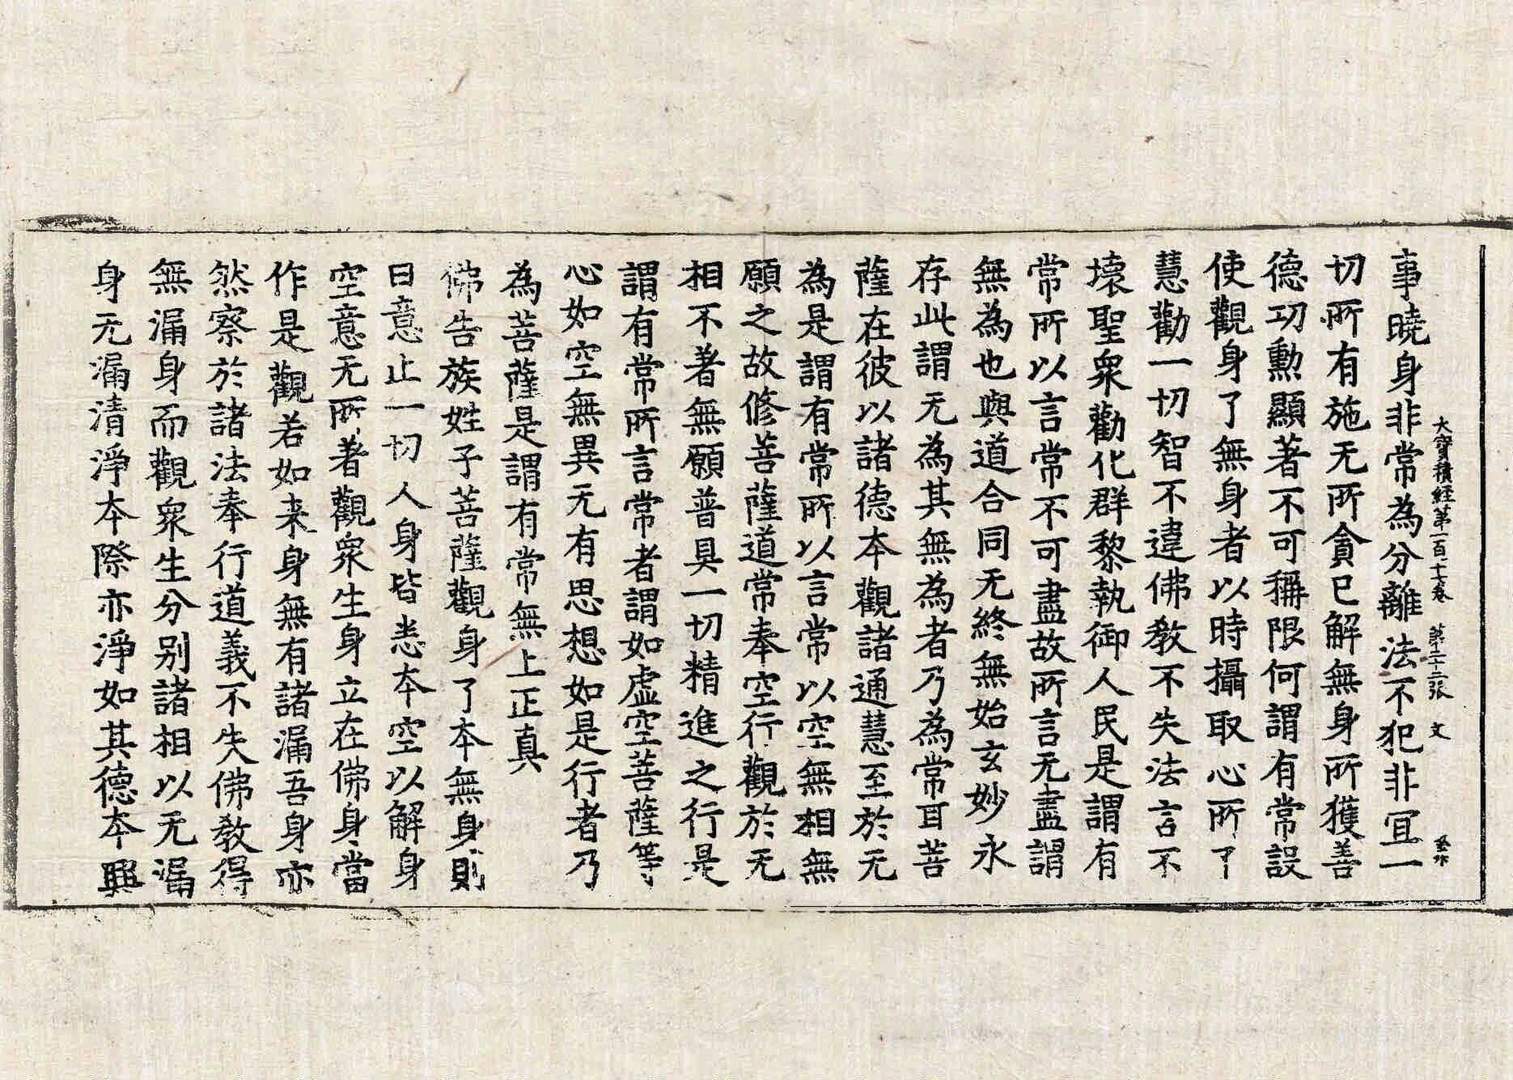 大寶積經第一百十七卷 第二十二張 文
事曉身非常為分離法不犯非冝一
切所有施无所貪已解無身所獲善
德功勳顯著不可稱限何謂有常設
使觀身了無身者以時攝取心所了
慧勸一切智不違佛教不失法言不
壞聖衆勸化群黎執御人民是謂有
常所以言常不可盡故所言无盡謂
無為也與道合同无終無始玄妙永
存此謂无為其無為者乃為常耳菩
薩在彼以諸德本觀諸通慧至於无
為是謂有常所以言常以空無相無
願之故修菩薩道常奉空行觀於无
相不著無願普具一切精進之行是
謂有常所言常者謂如虛空菩薩等
心如空無異无有思想如是行者乃
為菩薩是謂有常無上正真
佛告族姓子菩薩觀身了本無身則
曰意止一切人身皆悉本空以解身
空意无所著觀衆生身立在佛身當
作是觀若如来身無有諸漏吾身亦
然察於諸法奉行道義不失佛教得
無漏身而觀衆生分别諸相以无漏
身无漏清淨本際亦淨如其德本興